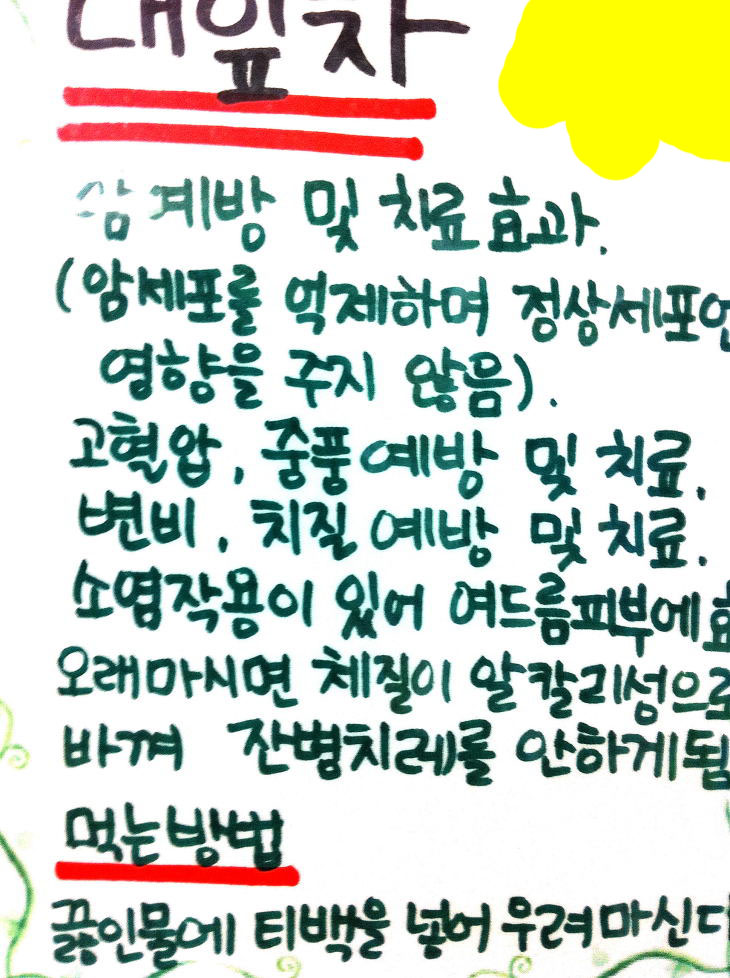 댚잎차
암 예방 및 치료 효과.
(암세포를 억제하며 정상세포엔
영향을 주지 않음).
고혈압, 중풍예방 및 치료.
변비, 치질 예방 및 치료.
소염작용이 있어 여드름피부에
오래마시면 체질이 알칼리성으로
바껴 잔병치레를 안하게됨
먹는방법
끓인물에 티백을 넣어 우려마신다